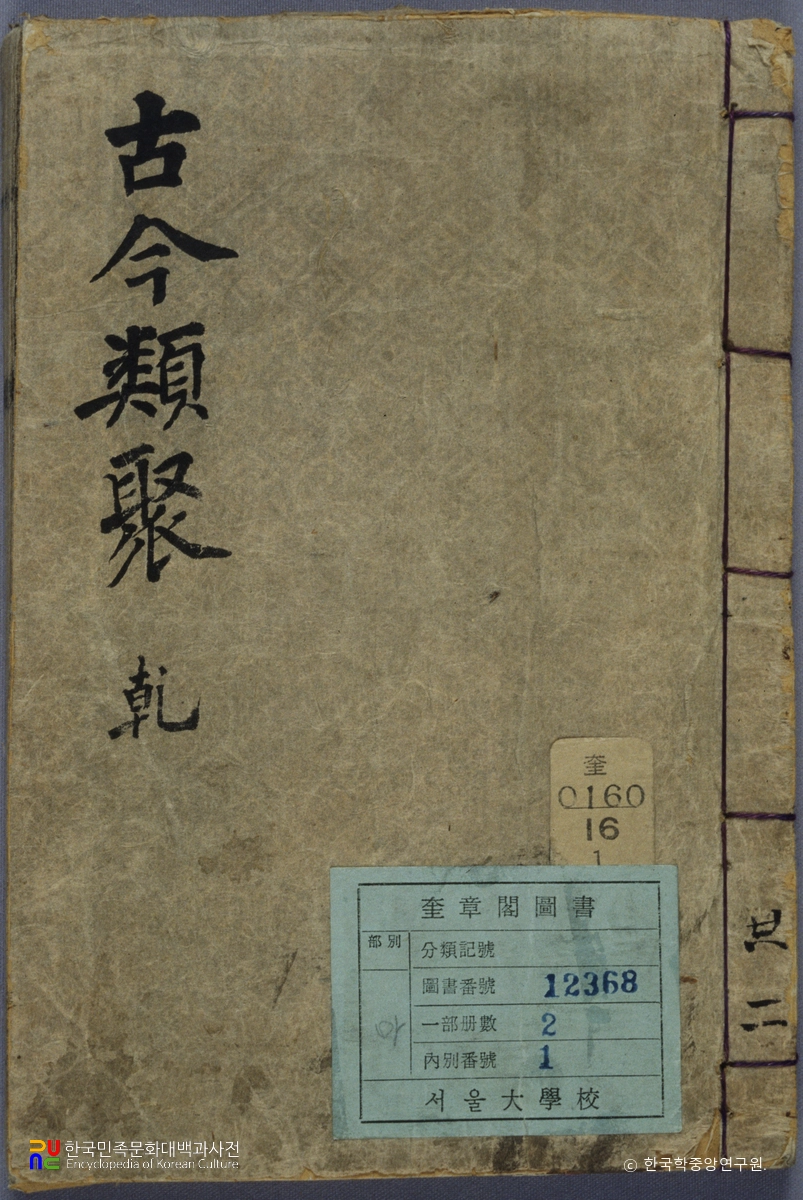 古今類聚 乾
共二
奎
0160
16
1
奎章閣圖書
部別
分類記號
圖書番號 12368
一部册數 2
內別番號 1
서울大學校
한국민족문화대백과사전
Encyclopedia of Korean Culture
© 한국학중앙연구원